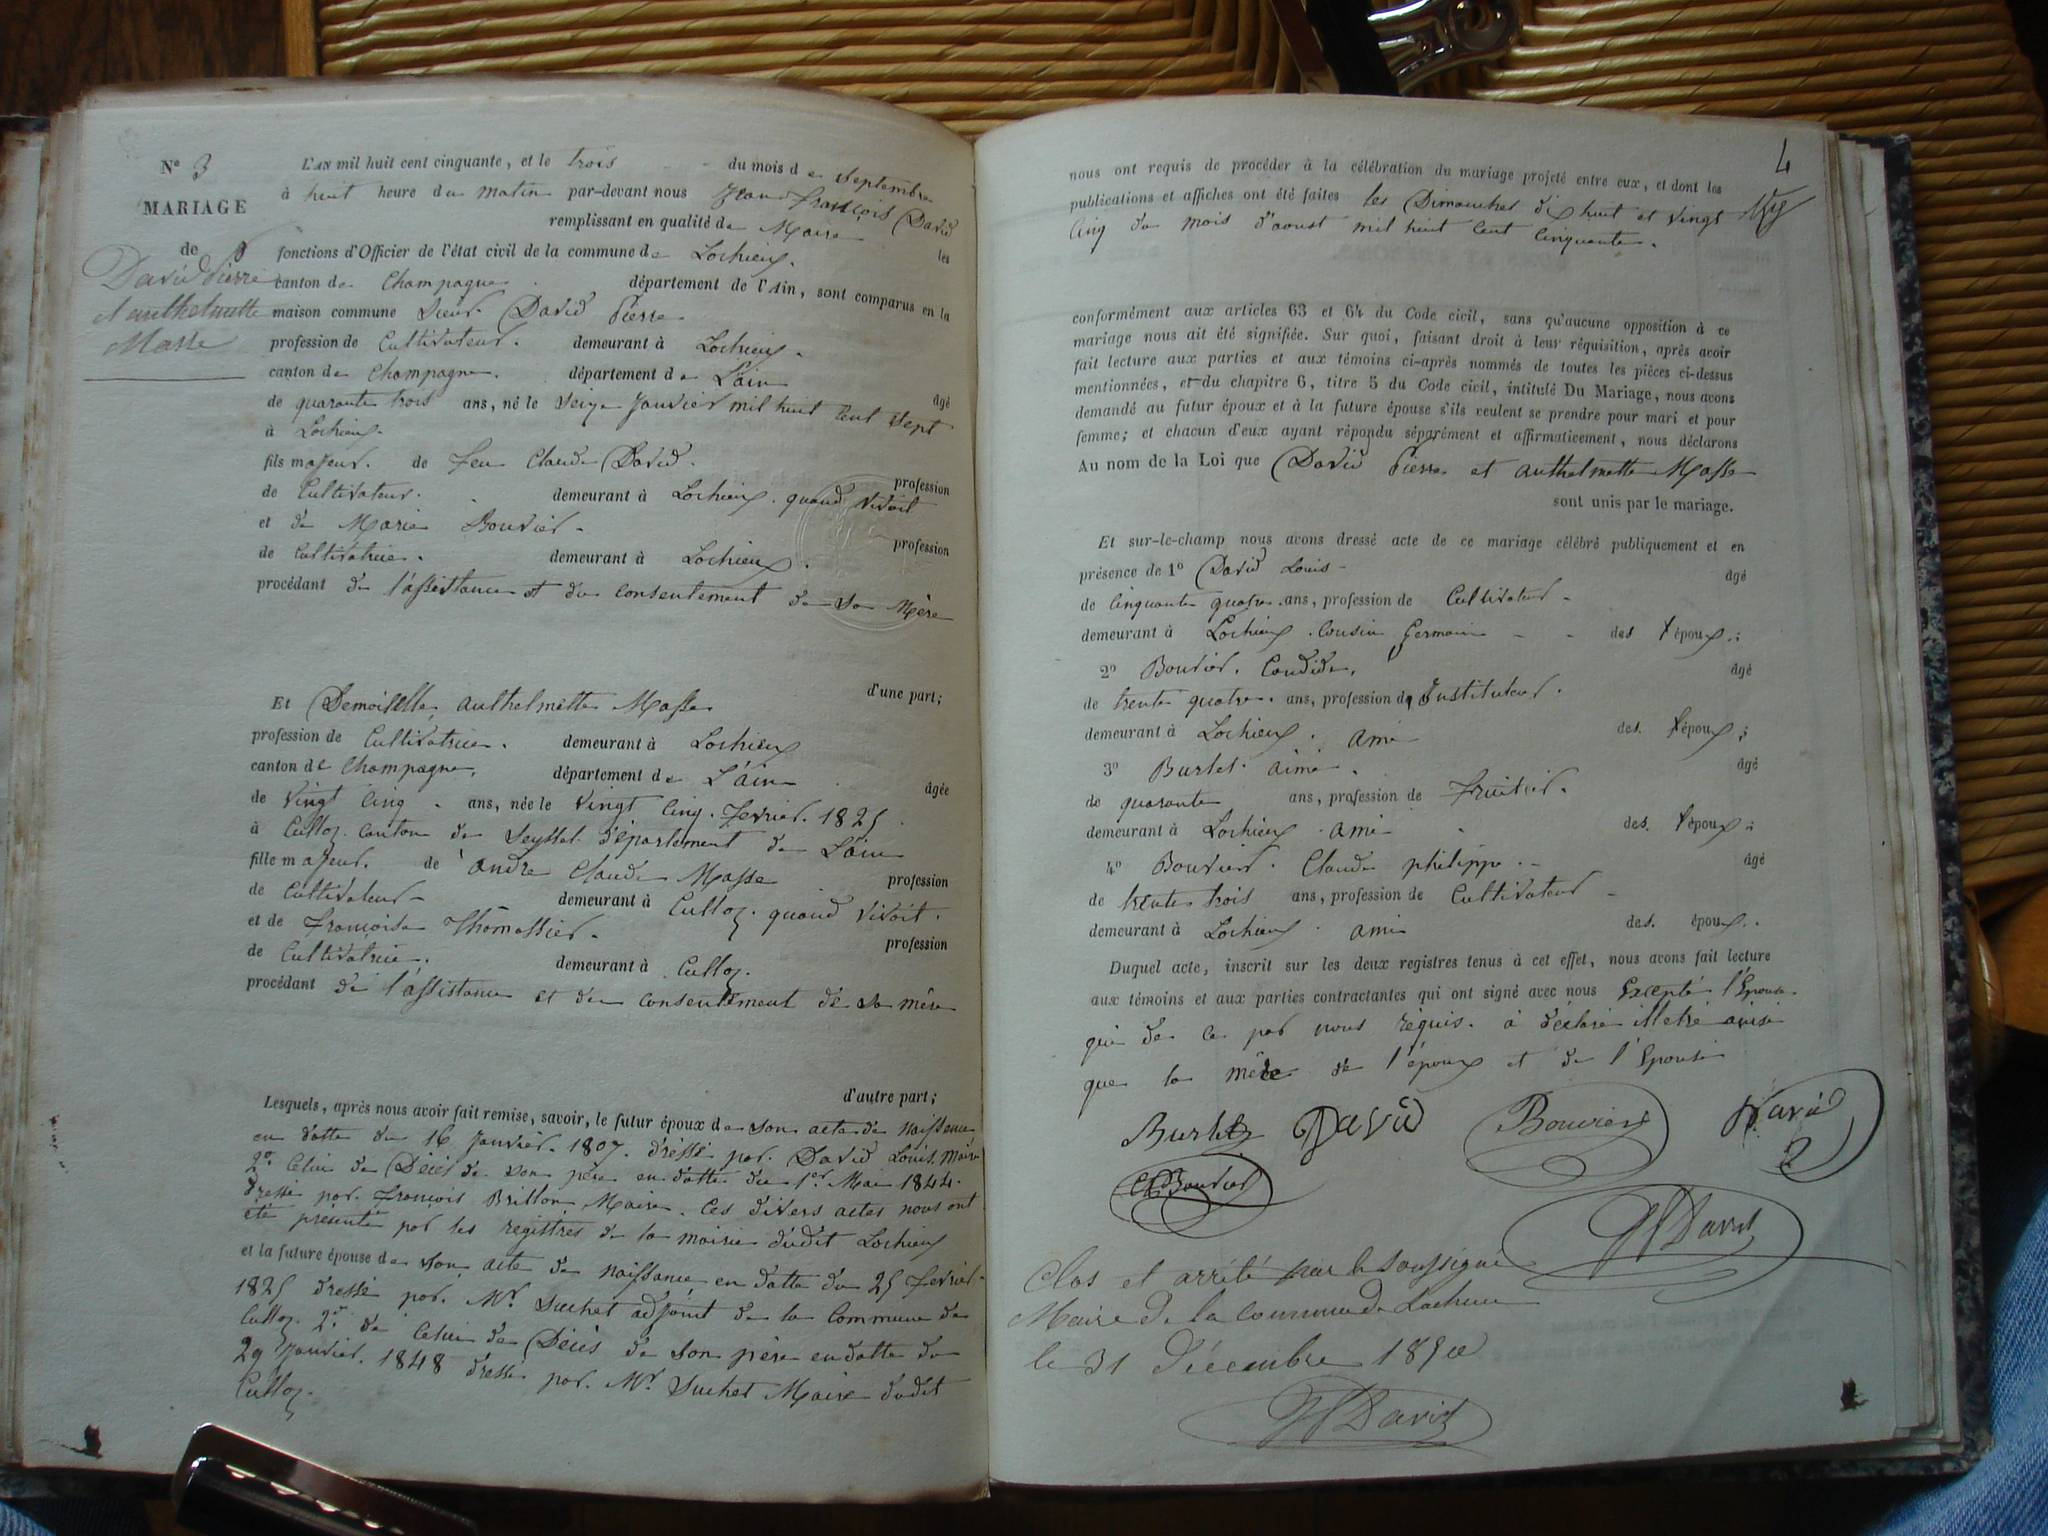 Nº 3
MARIAGE
de
David Pierre
et anthelmette
Masse
L'AN mil huit cent cinquante, et le trois du mois de Septembre
à huit heure du matin par-devant nous Jean François David
remplissant en qualité de Maire les
fonctions d'Officier de l'état civil de la commune de Lochieu.
canton de Champagne. département de l'Ain, sont comparus en la
maison commune Sieur David Pierre
profession de Cultivateur. demeurant à Lochieu.
canton de Champagne. département de L'ain
âgé
de quarante trois ans, né le Seize Janvier mil huit cent sept
à Lochieu.
fils majeur. de feu Claude David.
profession
de Cultivateur. demeurant à Lochieu. quand vivoit
et de Marie Bouvier.
profession
de Cultivatrice. demeurant à Lochieu.
procédant de l'assistance et du consentement de sa Mère
d'une part;
Et Demoiselle anthelmette Masse
profession de Cultivatrice. demeurant à Lochieu
canton de Champagne. département de L'ain
âgée
de Vingt Cinq. ans, née le Vingt Cinq. fevrier. 1825.
à Culloz. canton de Seyssel département de L'ain
fille majeur. de andre Claude Masse
profession
de Cultivateur demeurant à Culloz. quand vivoit.
et de françoise Thomassier.
profession
de Cultivatrice. demeurant à Culloz.
procédant de l'assistance et du consentement de sa mère
d'autre part;
Lesquels, après nous avoir fait remise, savoir, le futur époux de son acte de naissence
en datte du 16 Janvier. 1807. dressé par. David Louis. Maire
2º Celui de Décés de son père en datte du 1er Mai 1844.
dressé par. françois Brillon, Maire. Ces divers actes nous ont
été présenté par les registres de la mairie dudit Lochieu
et la future épouse de son acte de naissance en datte du 25 fevrier.
1825 dressé par. Mr. Suchet adjoint de la Commune de
Culloz. 2º de Celui de Décès de son père en datte du
29 Janvier. 1848 dressé par. Mr. Suchet Maire dudit
Culloz.
4
nous ont requis de procéder à la célébration du mariage projeté entre eux, et dont les
publications et affiches ont été faites les Dimanches dix huit et vingt
Cinq du mois d'aoust mil huit Cent Cinquante.
conformément aux articles 63 et 64 du Code civil, sans qu'aucune opposition à ce
mariage nous ait été signifiée. Sur quoi, faisant droit à leur réquisition, après avoir
fait lecture aux parties et aux témoins ci-après nommés de toutes les pièces ci-dessus
mentionnées, et du chapitre 6, titre 5 du Code civil, intitulé Du Mariage, nous avons
demandé au futur époux et à la future épouse s'ils veulent se prendre pour mari et pour
femme; et chacun d'eux ayant répondu séparément et affirmativement, nous déclarons
Au nom de la Loi que David Pierre et anthelmette Masse
sont unis par le mariage.
Et sur-le-champ nous avons dressé acte de ce mariage célébré publiquement et en
présence de 1º David Louis
âgé
de Cinquante quatre. ans, profession de Cultivateur
demeurant à Lochieu. Cousin Germain des époux.;
2º Bouvier. Candide.
âgé
de trente quatre. ans, profession de Instituteur.
demeurant à Lochieu. ami des. époux;
3º Burlet aimé.
âgé
de quarante ans, profession de fruitier.
demeurant à Lochieu. ami des. époux;
4º Bouvier. Claude philippe.
âgé
de trente trois ans, profession de Cultivateur
demeurant à Lochieu. ami des. époux.
Duquel acte, inscrit sur les deux registres tenus à cet effet, nous avons fait lecture
aux témoins et aux parties contractantes qui ont signé avec nous Excepté l'Epouse
qui de ce par nous réquis. à declaré
que la mère de l'époux et de l'Epouse
Burlet David Bouvier David
Cl Bouvier
JF David
Clos et arrêté par le soussigné
Maire de la commune de Lochieu
le 31 décembre 1850
JF David